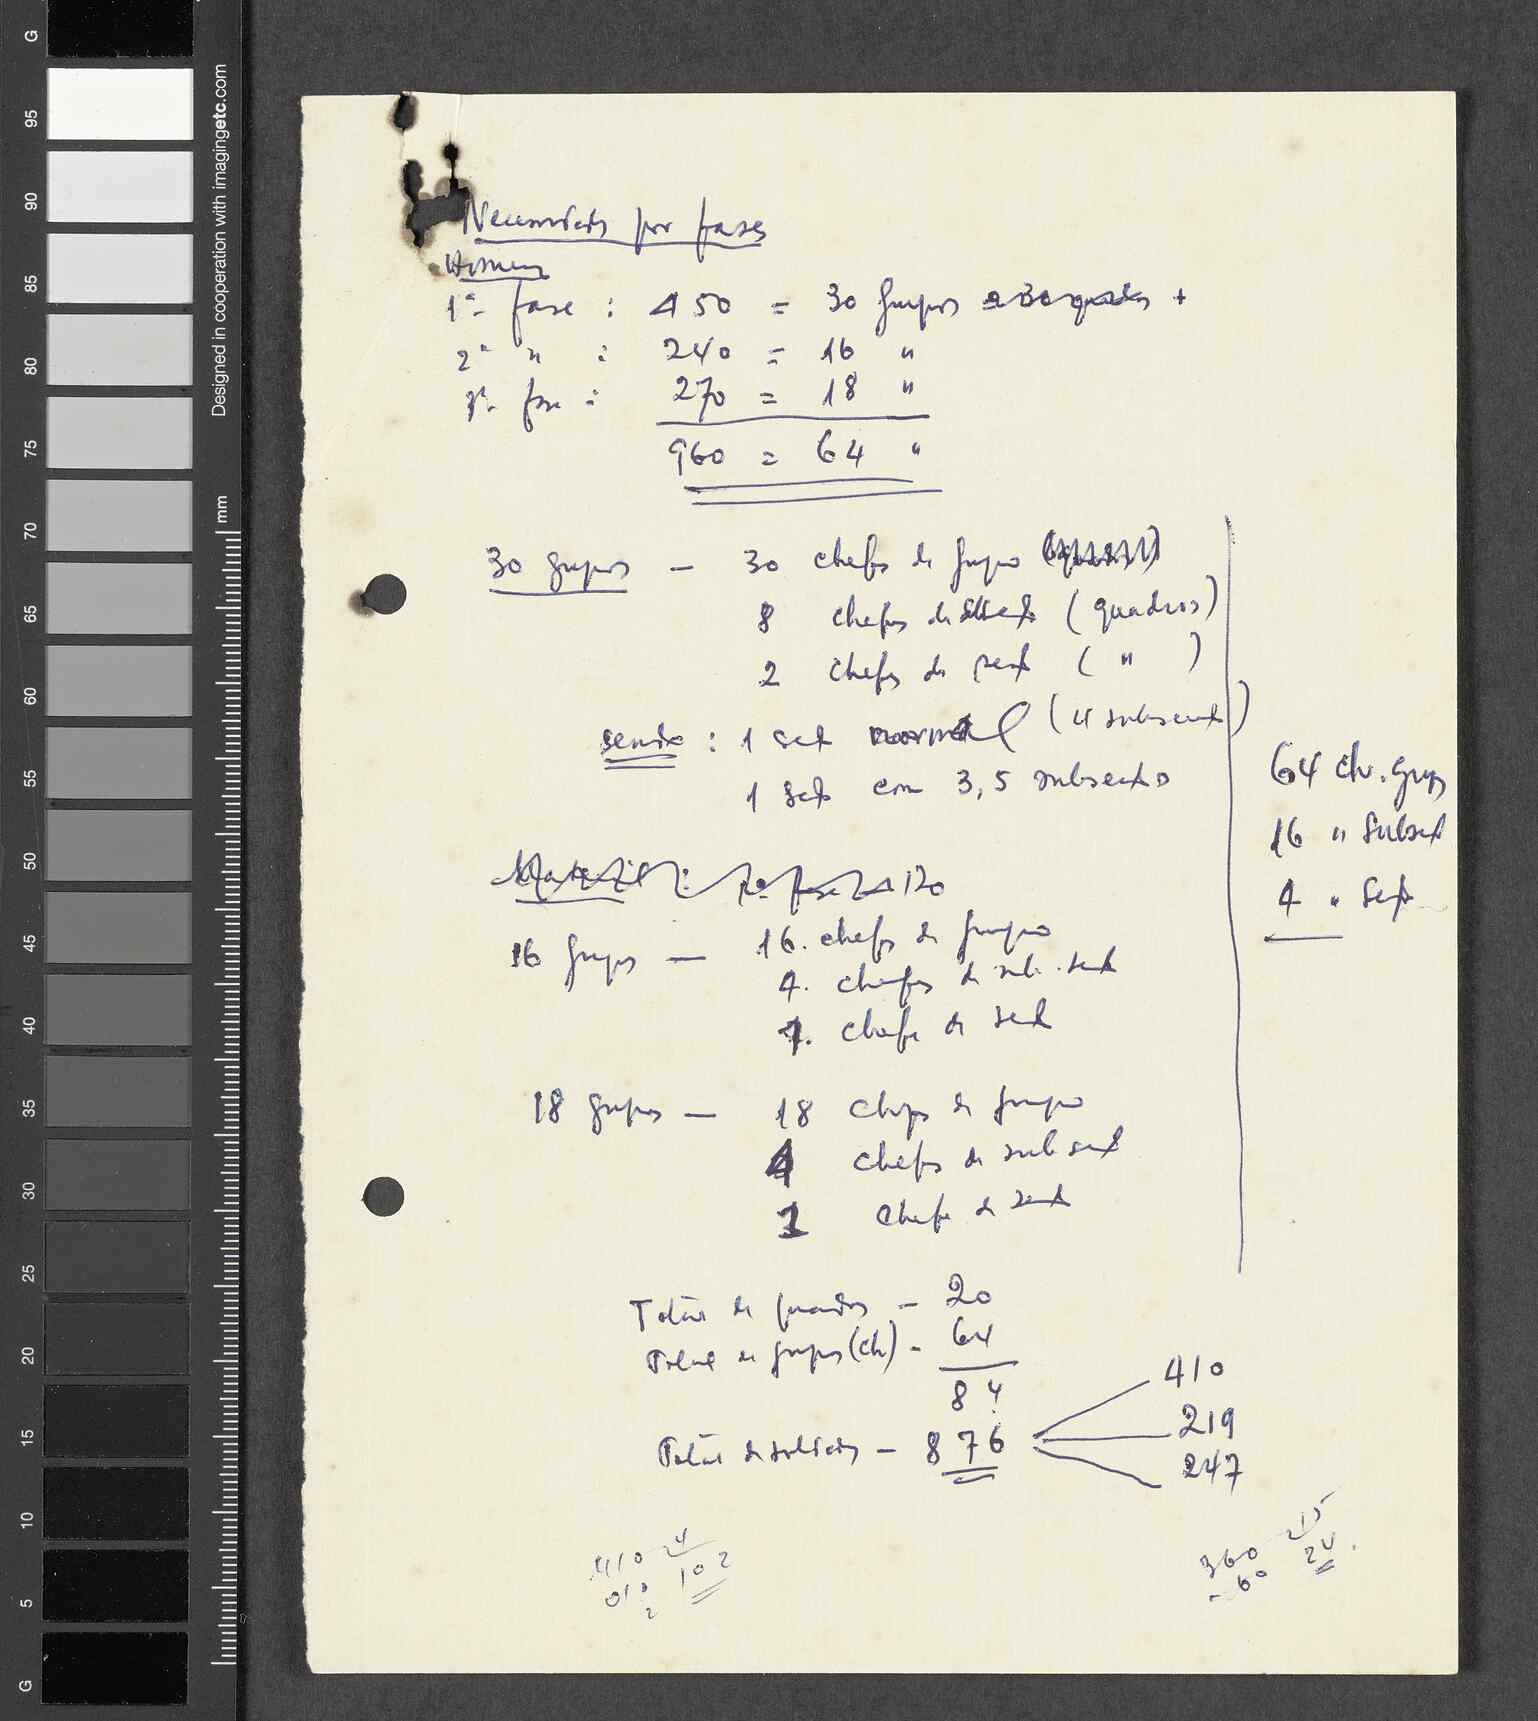 Necessidades por fases
Homens
1ª fase : 450 = 30 grupos +
2ª " : 240 = 16 "
3ª fase : 270 = 18 "
960 = 64 "
30 grupos — 30 chefes de grupo
8 chefes de subsect (quadros)
2 chefes de sect ( " )
sendo : 1 sect normal (4 subsect)
1 sect com 3,5 subsect
64 ch. grup
16 " Subsect
4 " Sect
Material : 1ª fase 120
16 grupos — 16. chefes de grupo
4. chefes de sub. sect
1. chefe de sect
18 grupos — 18 chefes de grupo
4 chefes de subsect
1 chefe de sect
Total de quadros — 20
Total de grupos (ch) - 64
84
Total de soldados — 876
410
219
247
410 4
010 102
2
360 15
-60 24
G
95
90
85
80
75
70
65
60
55
50
45
40
35
30
25
20
15
10
5
G
mm
Designed in cooperation with imagingetc.com